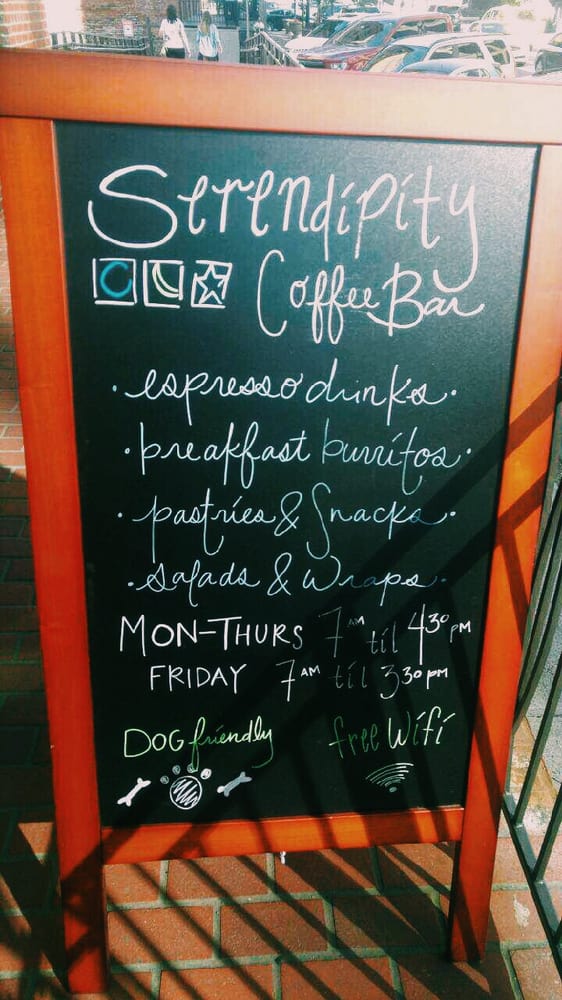 Serendipity
Coffee Bar
· espresso drinks ·
· breakfast burritos ·
· pastries & Snacks ·
· salads & wraps ·
MON-THURS 7AM til 430 PM
FRIDAY 7AM til 330pm
DOG friendly free Wifi